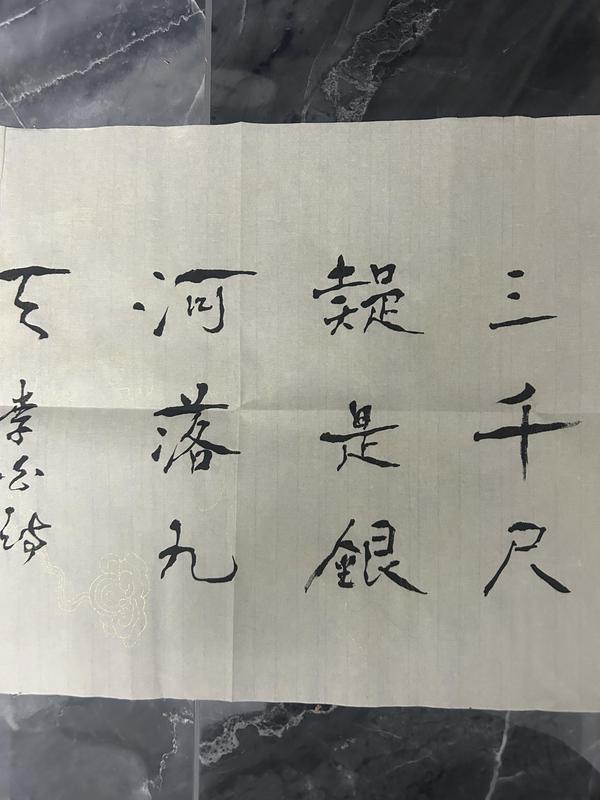 三千尺
疑是銀
河落九
天
李白詩